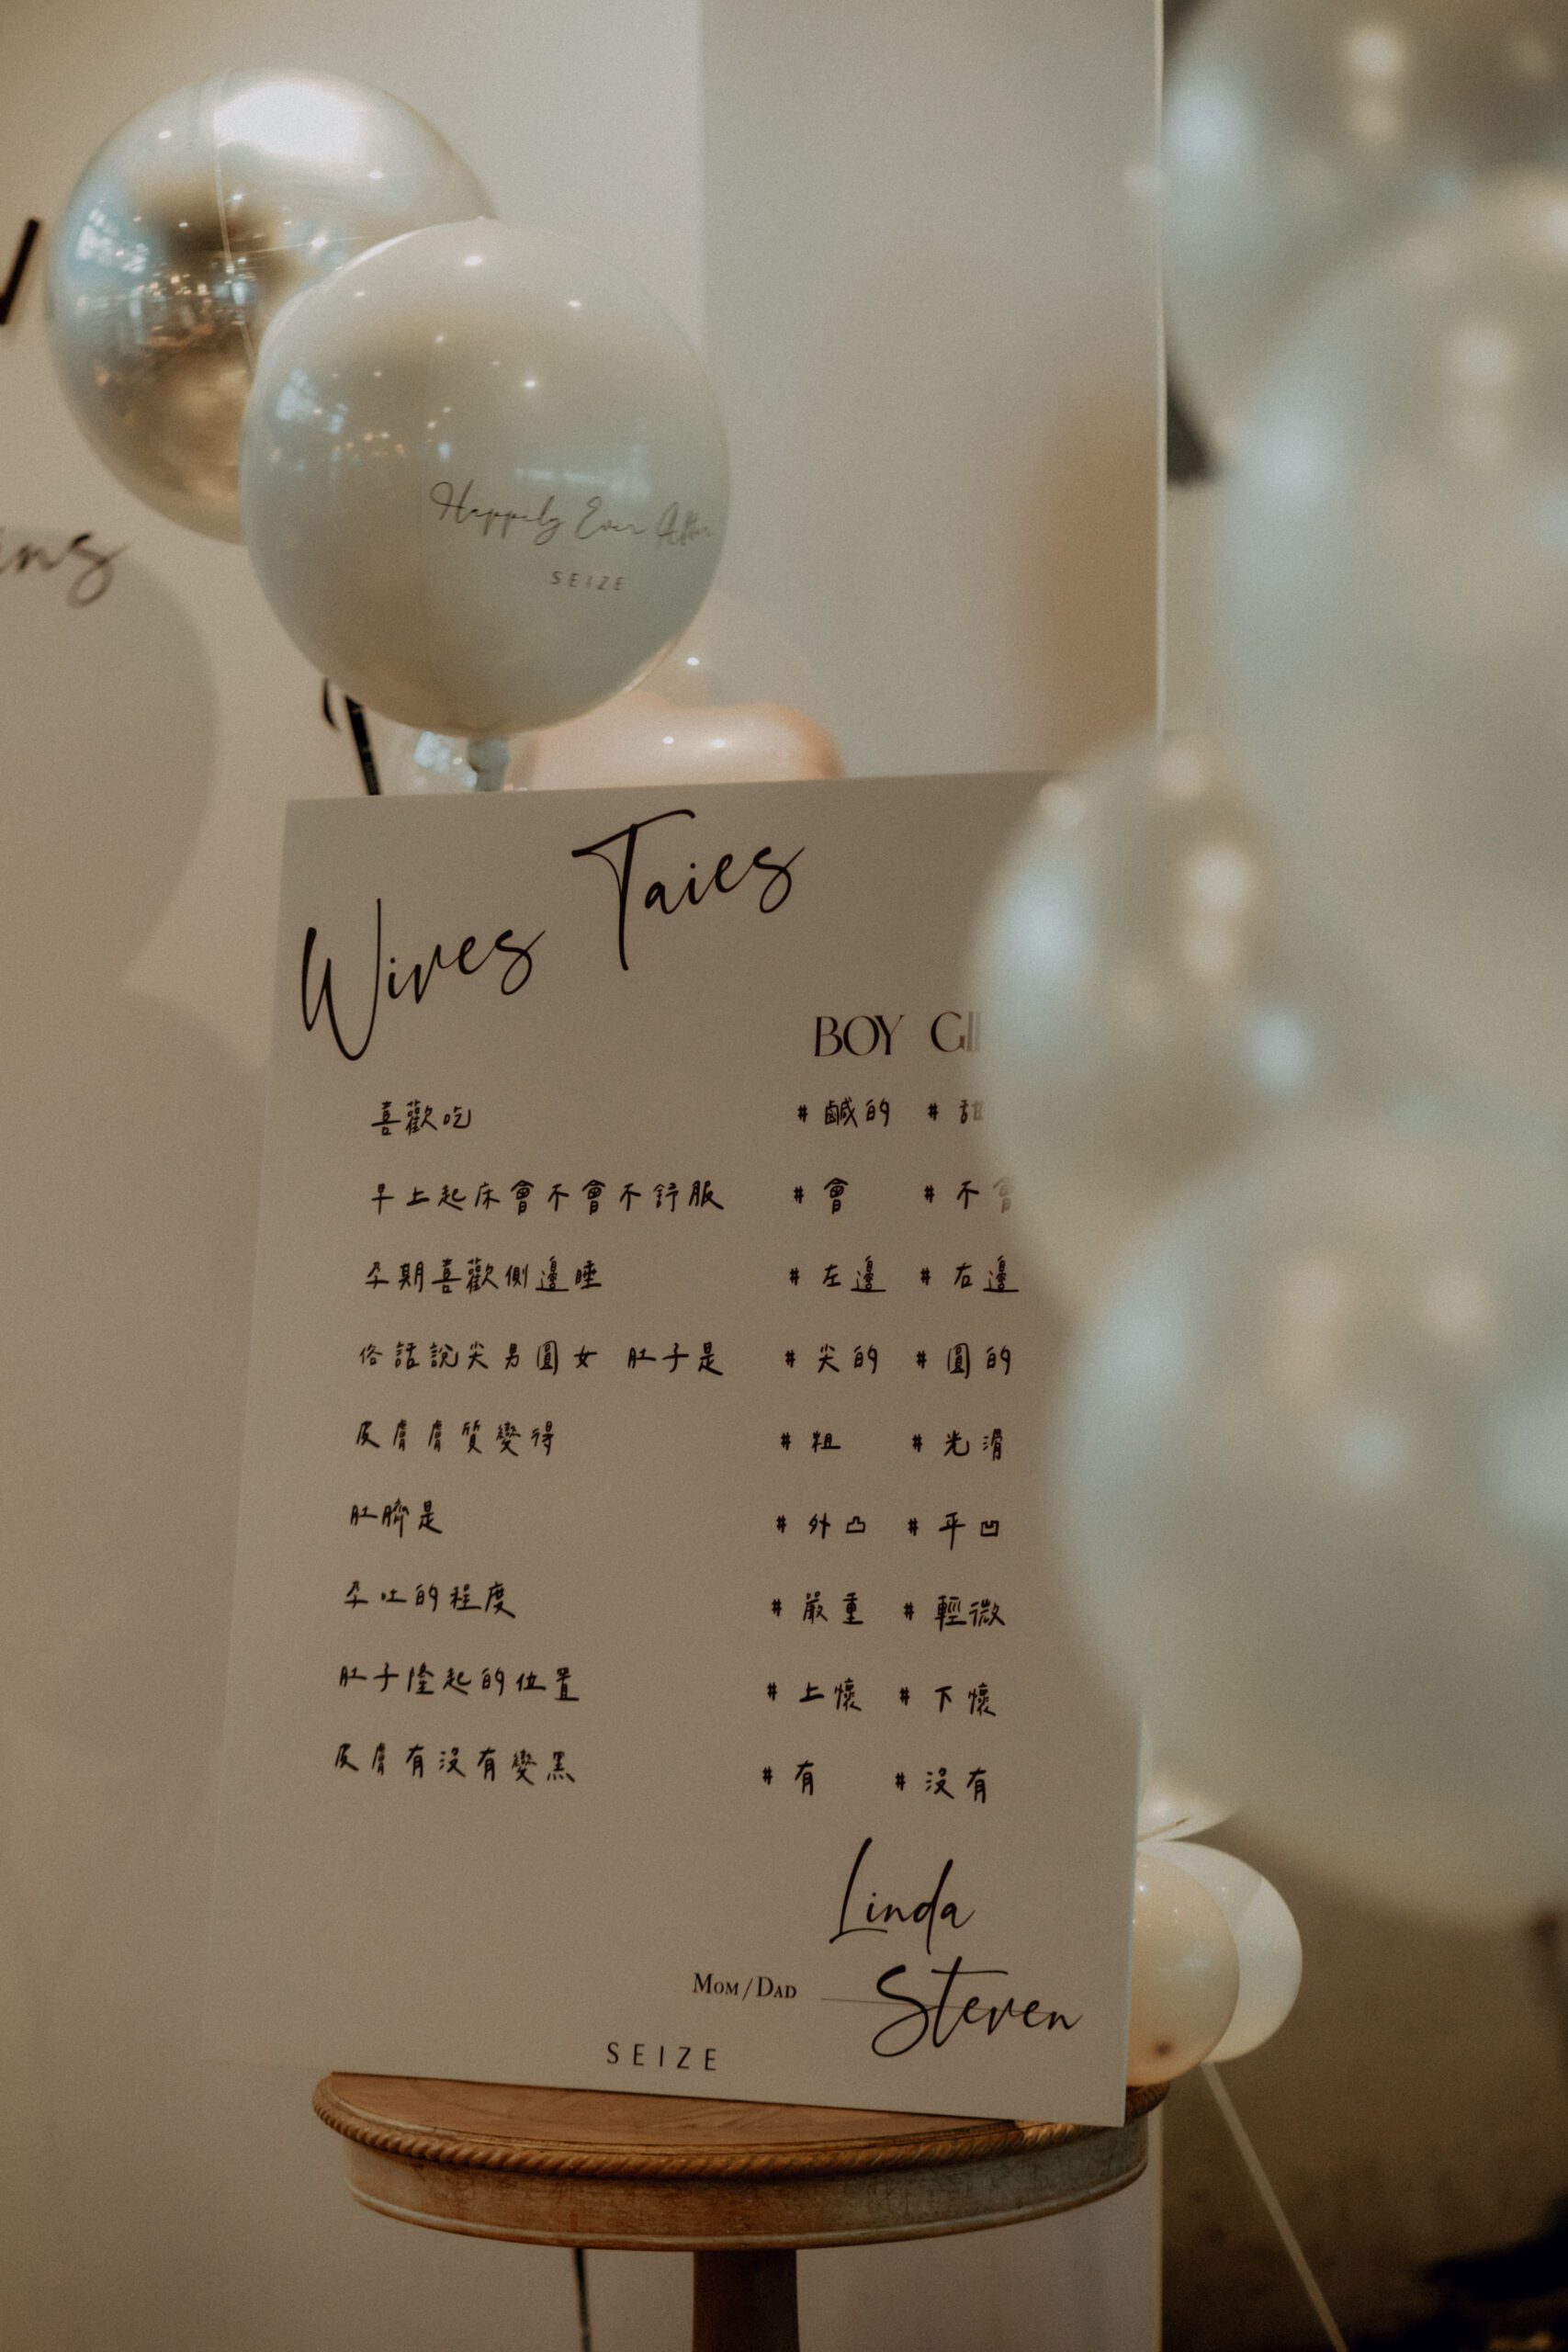 Happily Ever After
SEIZE
Wives Taies
BOY
喜歡吃 #鹹的 #
早上起床會不會不舒服 #會 #不會
孕期喜歡側邊睡 #左邊 #右邊
俗話說尖男圓女 肚子是 #尖的 #圓的
皮膚膚質變得 #粗 #光滑
肚臍是 #外凸 #平凹
孕吐的程度 #嚴重 #輕微
肚子隆起的位置 #上懷 #下懷
皮膚有沒有變黑 #有 #沒有
Linda
MOM/DAD Steven
SEIZE